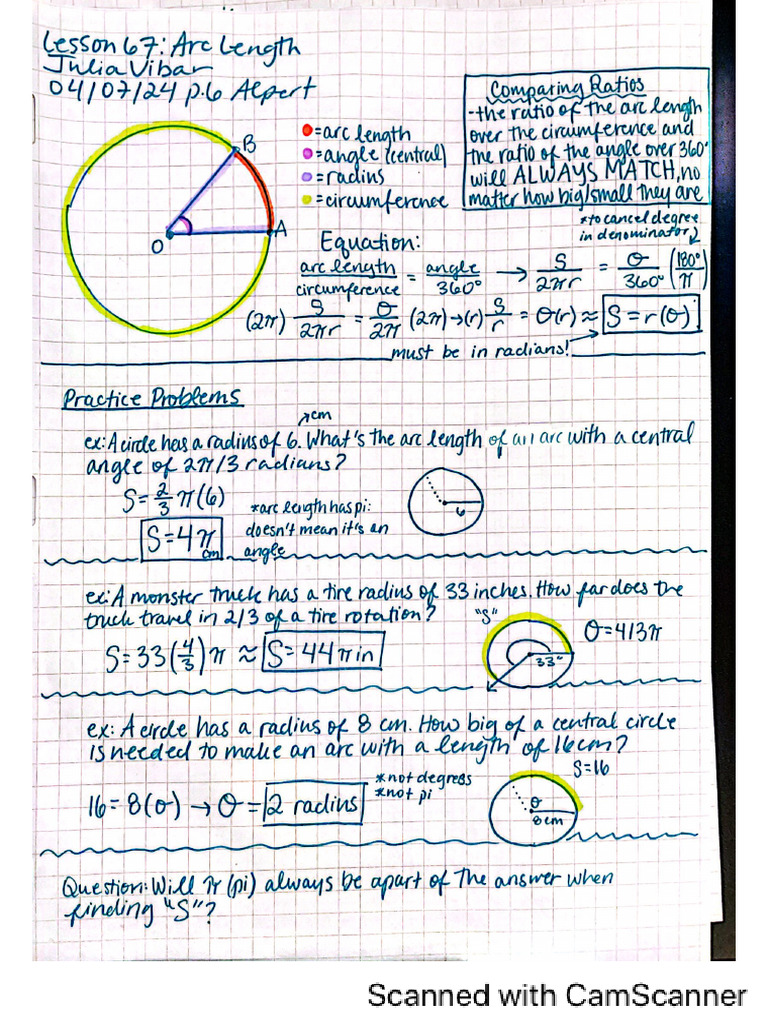 Lesson 67: Arc Length
Julia Vibar
04/07/24 p.6 Alpert
Comparing Ratios
-the ratio of the arc length
over the circumference and
the ratio of the angle over 360°
will ALWAYS MATCH, no
matter how big/small they are
B
A
O
=arc length
=angle (central)
=radius
=circumference
*to cancel degree
in denominator
Equation:
arc length/circumference = angle/360° → S/2πr = θ/360° (180°/π)
(2π) S/2πr = θ/2π (2π) → (r) S/r = θ(r) ≈ S=r(θ)
must be in radians!
Practice Problems
cm
ex: A circle has a radius of 6. What's the arc length of an arc with a central
angle of 2π/3 radians?
S=2/3 π(6)
S=4π cm
*arc length has pi:
doesn't mean it's an
angle
6
ex: A monster truck has a tire radius of 33 inches. How far does the
truck travel in 2/3 of a tire rotation?
"S"
θ=4/3π
S=33(4/3)π ≈ S=44π in
33"
ex: A circle has a radius of 8 cm. How big of a central circle
is needed to make an arc with a length of 16cm?
S=16
16=8(θ) → θ=2 radius
*not degrees
*not pi
θ
8cm
Question: Will π (pi) always be apart of the answer when
finding "S"?
Scanned with CamScanner